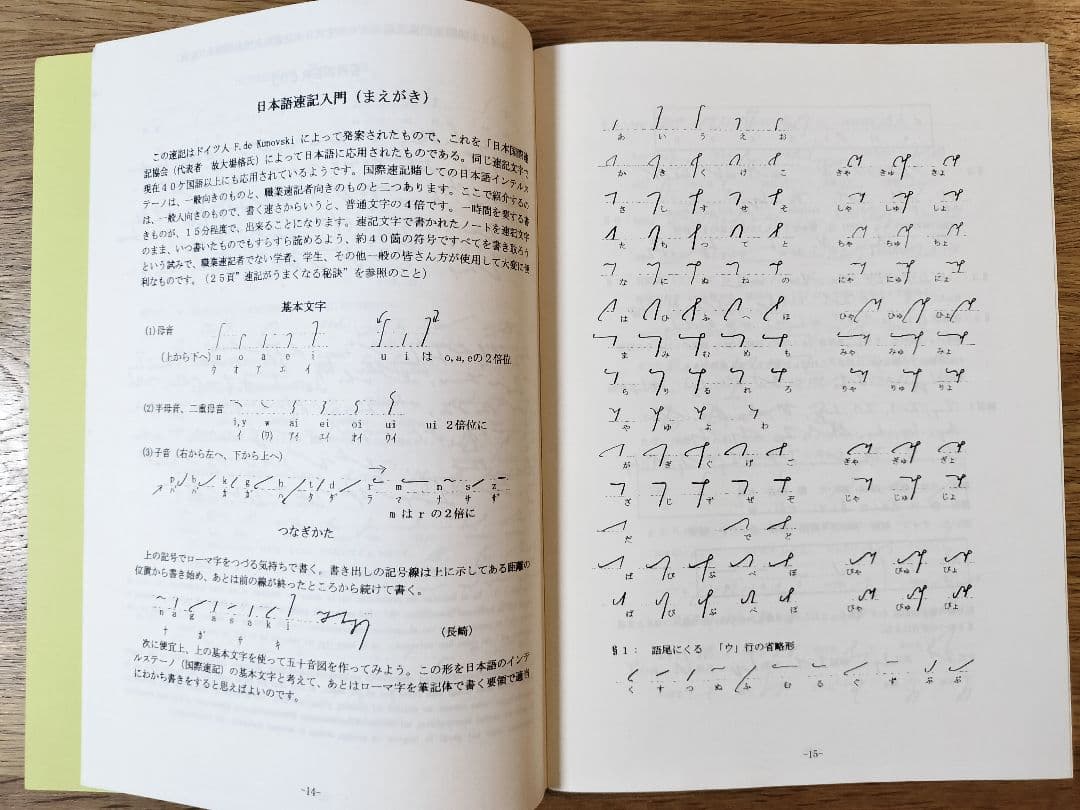 日本語速記入門（まえがき）
この速記はドイツ人 F.de Kunovski によって発案されたもので、これを「日本国際速
記協会（代表者 故大場格氏）によって日本語に応用されたものである。同じ速記文字で
現在４０ケ国語以上にも応用されているようです。国際速記暗しての日本語インテルス
テーノは、一般向きのものと、職業速記者向きのものと二つあります。ここで紹介するの
は、一般人向きのもので、書く速さからいうと、普通文字の４倍です。一時間を要する書
きものが、１５分程度で、出来ることになります。速記文字で書かれたノートを速記文字
のまま、いつ書いたものでもすらすら読めるよう、約４０箇の符号ですべてを書き取ろう
という試みで、職業速記者でない学者、学生、その他一般の皆さん方が使用して大変に便
利なものです。（２５頁"速記がうまくなる秘訣"を参照のこと）
基本文字
(1)母音
(上から下へ) u o a e i
ウ オ ア エ イ
u i は o,a,eの２倍位
(2)半母音、二重母音
i,y w ai ei oi ui ui ２倍位に
イ (ワ) アイ エイ オイ ウイ
(3)子音（右から左へ、下から上へ）
p b k g h t d r m n s z
ラ マ ナ サ ザ
m は r の２倍に
つなぎかた
上の記号でローマ字をつづる気持ちで書く。書き出しの記号線は上に示してある距離の
位置から書き始め、あとは前の線が終ったところから続けて書く。
n a g a s a k i
ナ ガ サ キ
（長崎）
次に便宜上、上の基本文字を使って五十音図を作ってみよう。この形を日本語のインテ
ルステーノ（国際速記）の基本文字と考えて、あとはローマ字を筆記体で書く要領で適当
にわかち書きをすると思えばよいのです。
-14-
あ い う え お
か き く け こ きゃ きゅ きょ
さ し す せ そ しゃ しゅ しょ
た ち つ て と ちゃ ちゅ ちょ
な に ぬ ね の にゃ にゅ にょ
は ひ ふ へ ほ ひゃ ひゅ ひょ
ま み む め も みゃ みゅ みょ
ら り る れ ろ りゃ りゅ りょ
や ゆ よ わ
が ぎ ぐ げ ご ぎゃ ぎゅ ぎょ
ざ じ ず ぜ ぞ じゃ じゅ じょ
だ で ど
ば び ぶ べ ぼ びゃ びゅ びょ
ぱ ぴ ぷ ぺ ぽ ぴゃ ぴゅ ぴょ
１： 語尾にくる 「ウ」行の省略形
く す つ ぬ ふ む る ぐ ず ぶ ぷ
-15-